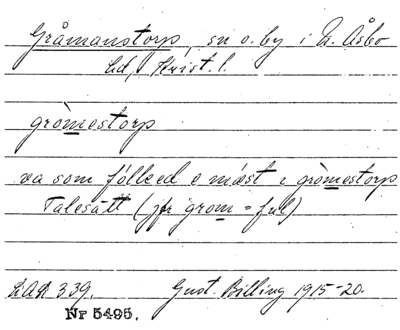 Gråmanstorp, sn o. by i N. Åsbo
hd, Krist. l.
gròmestorp
va som fólked e mást i gròmestorp
Talesätt (jfr grom = ful)
LAL 339. Gust. Billing 1915-20.
Nr 5495.